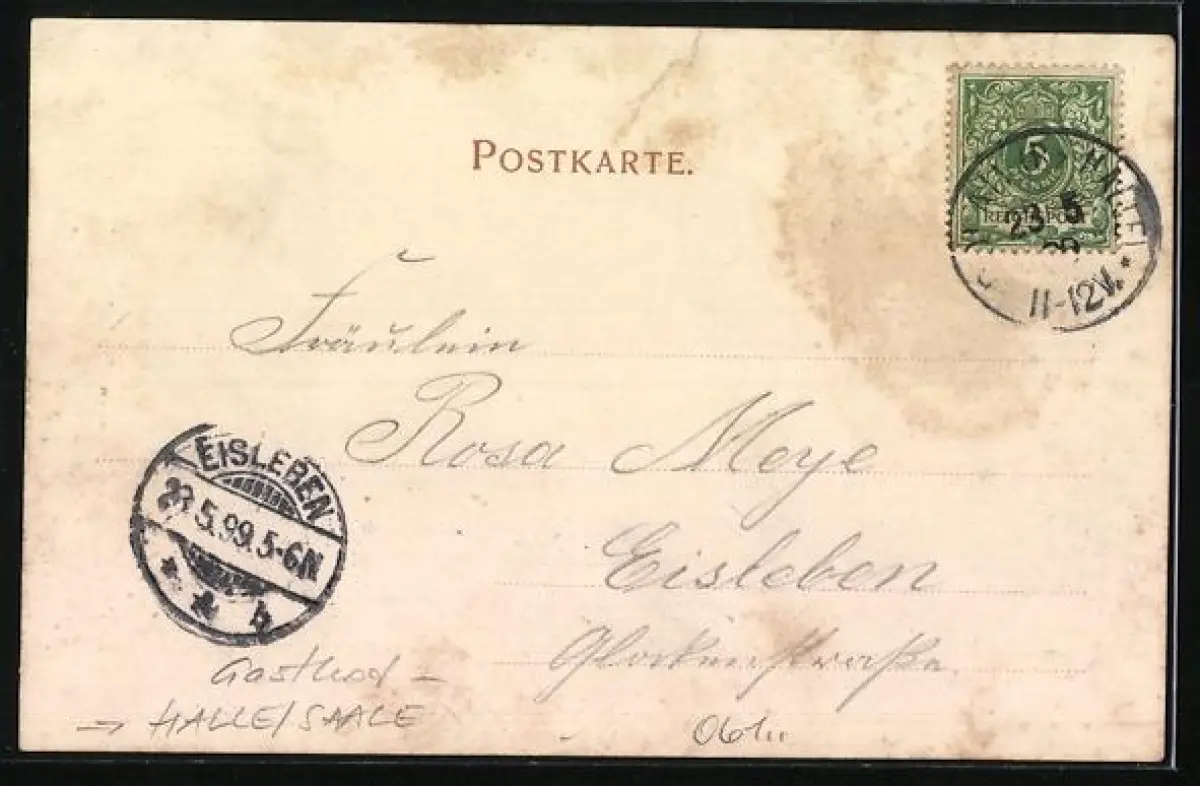 POSTKARTE.
5
REICHSPOST
23 5
99
11-12V.*
Fräulein
Rosa Meye
Eisleben
Glockenstraße
EISLEBEN
23.5.99.5-6N
* * b
Gasthof –
→ HALLE/SAALE